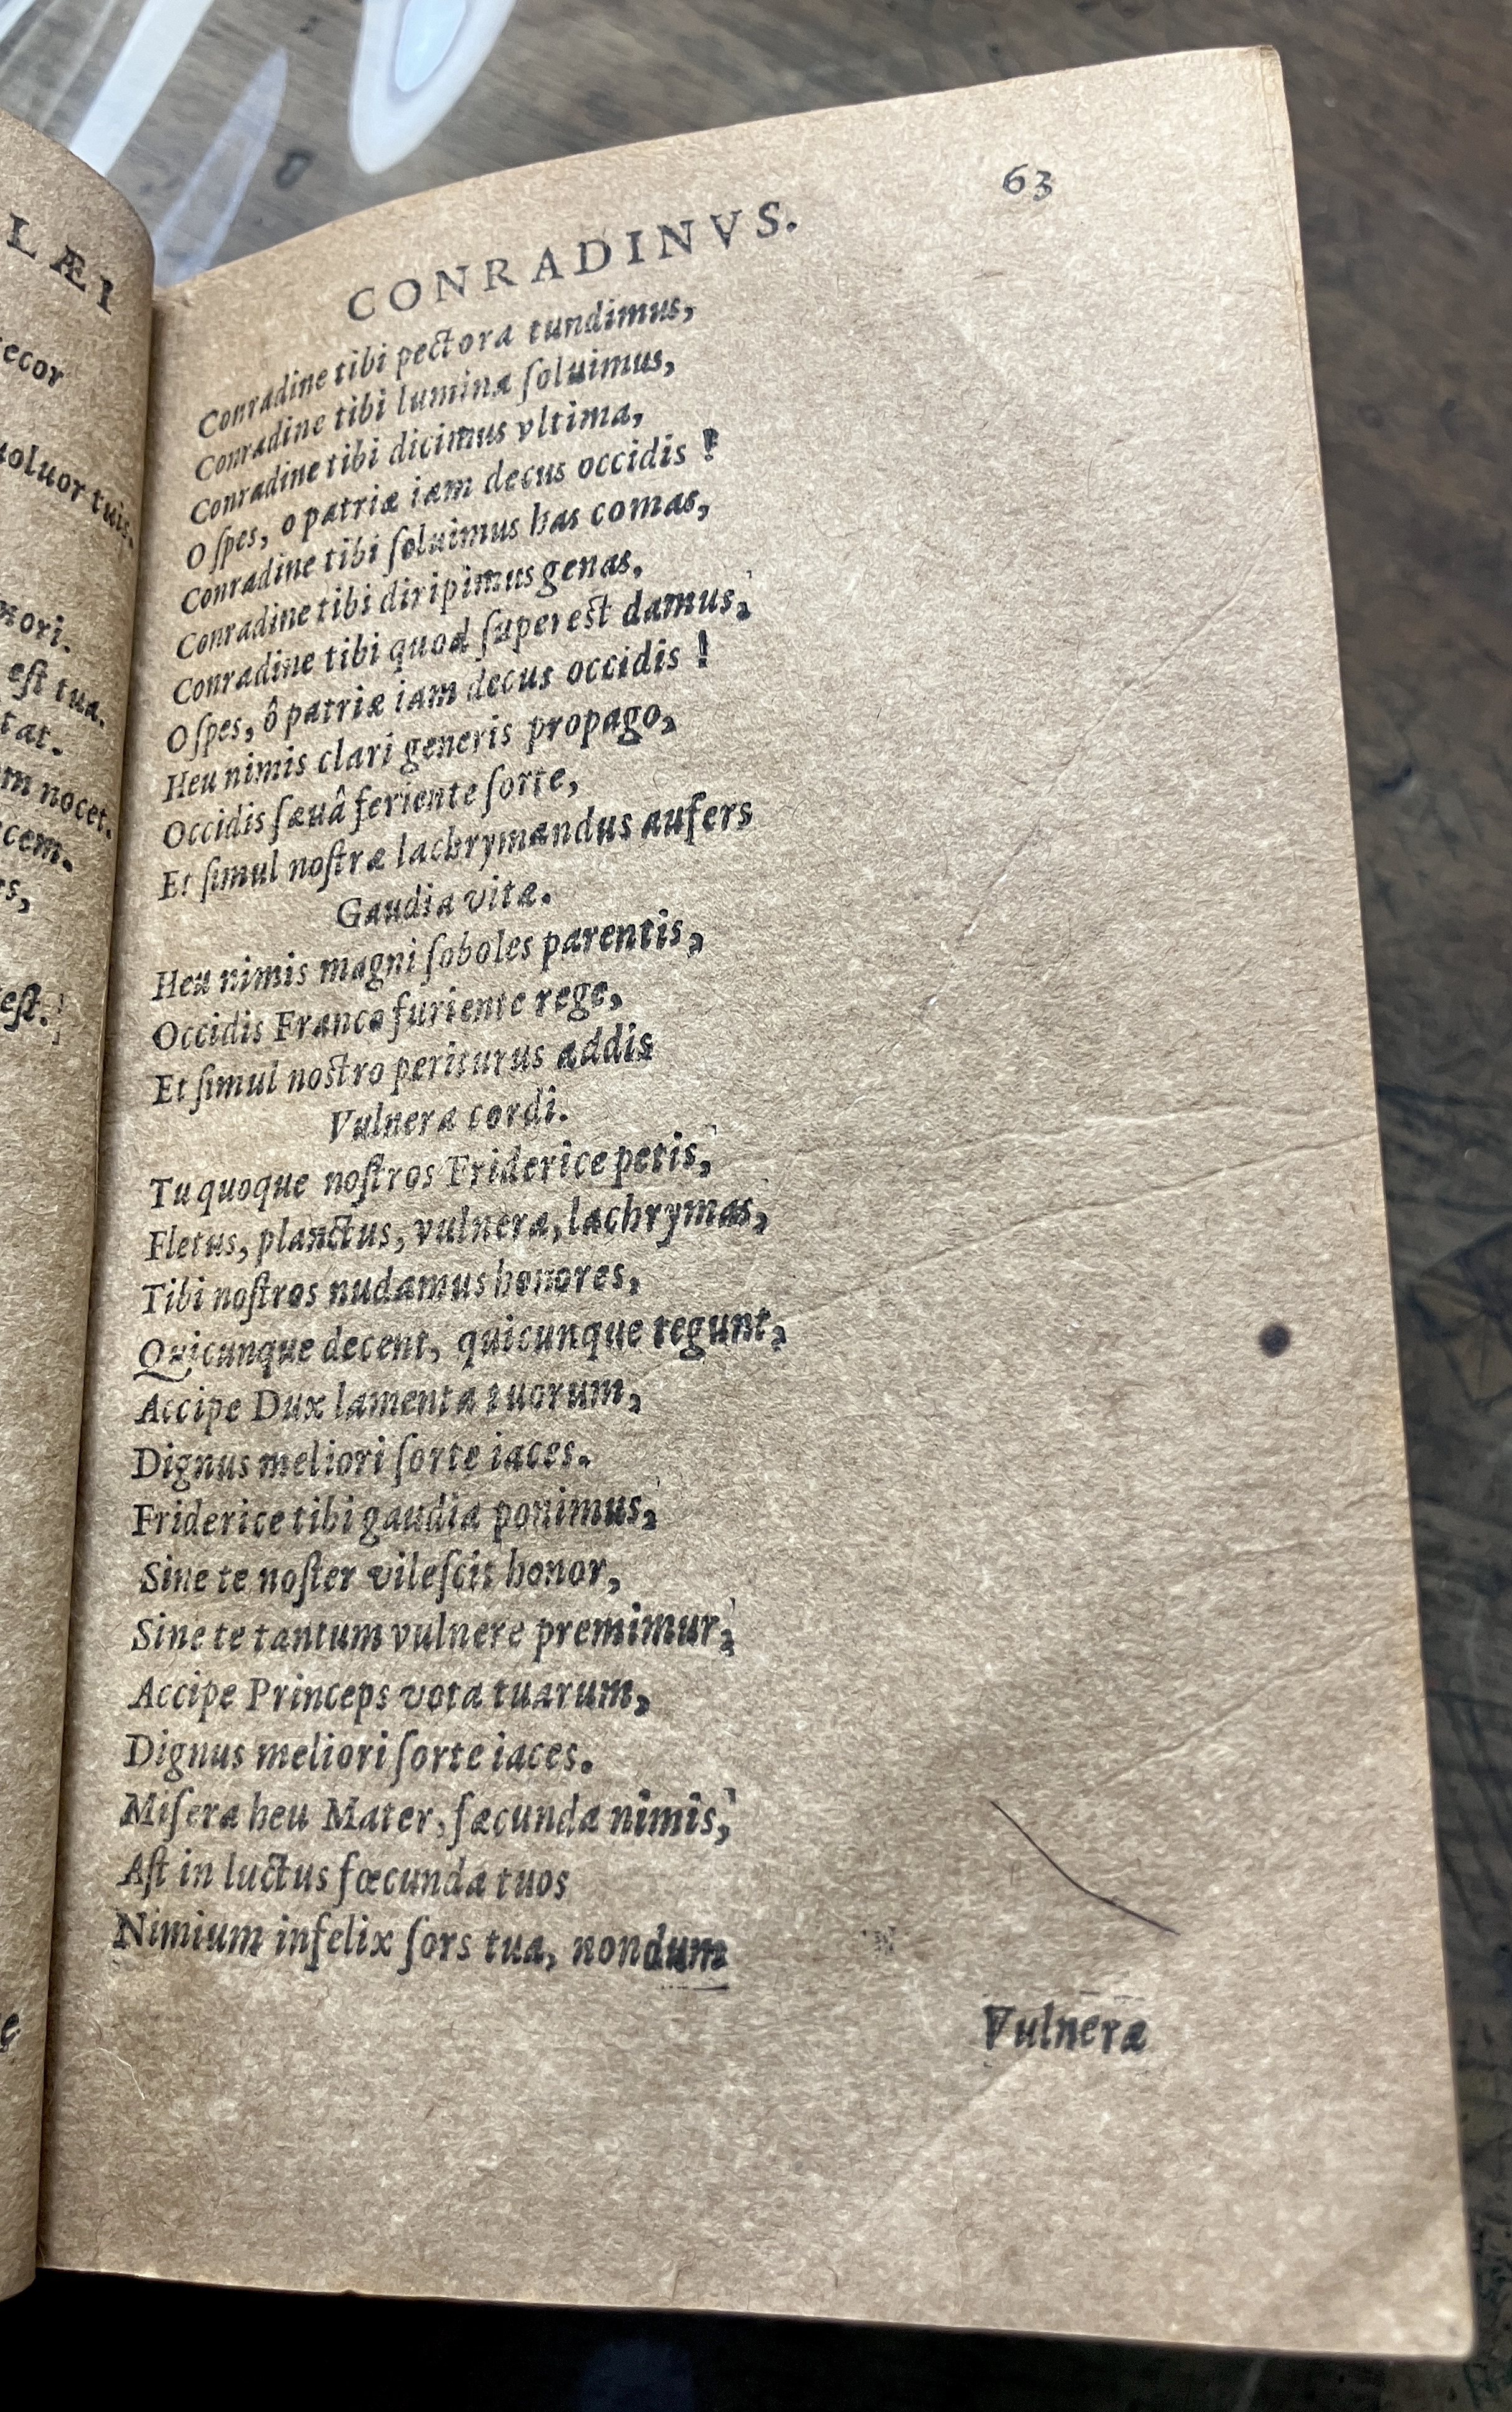 LÆI
ecor
uoluor tuis.
nori.
eſt tua.
tat.
m nocet.
cem.
rs,
eſt.
63
CONRADINVS.
Conradine tibi pectora tundimus,
Conradine tibi lumina ſoluimus,
Conradine tibi dicimus vltima,
O ſpes, o patriæ iam decus occidis !
Conradine tibi ſoluimus has comas,
Conradine tibi diripimus genas,
Conradine tibi quod ſupereſt damus,
O ſpes, ô patriæ iam decus occidis !
Heu nimis clari generis propago,
Occidis ſæuâ feriente ſorte,
Et ſimul noſtræ lachrymandus aufers
Gaudia vitæ.
Heu nimis magni ſoboles parentis,
Occidis Franco furiente rege,
Et ſimul noſtro periturus addis
Vulnera cordi.
Tu quoque noſtros Friderice petis,
Fletus, planctus, vulnera, lachrymas,
Tibi noſtros nudamus honores,
Quicunque decent, quicunque regunt,
Accipe Dux lamenta tuorum,
Dignus meliori ſorte iaces.
Friderice tibi gaudia ponimus,
Sine te noſter vileſcit honor,
Sine te tantum vulnere premimur,
Accipe Princeps vota tuarum,
Dignus meliori ſorte iaces.
Miſera heu Mater, fæcunda nimis,
Aſt in luctus fœcunda tuos
Nimium infelix ſors tua, nondum
Vulnera